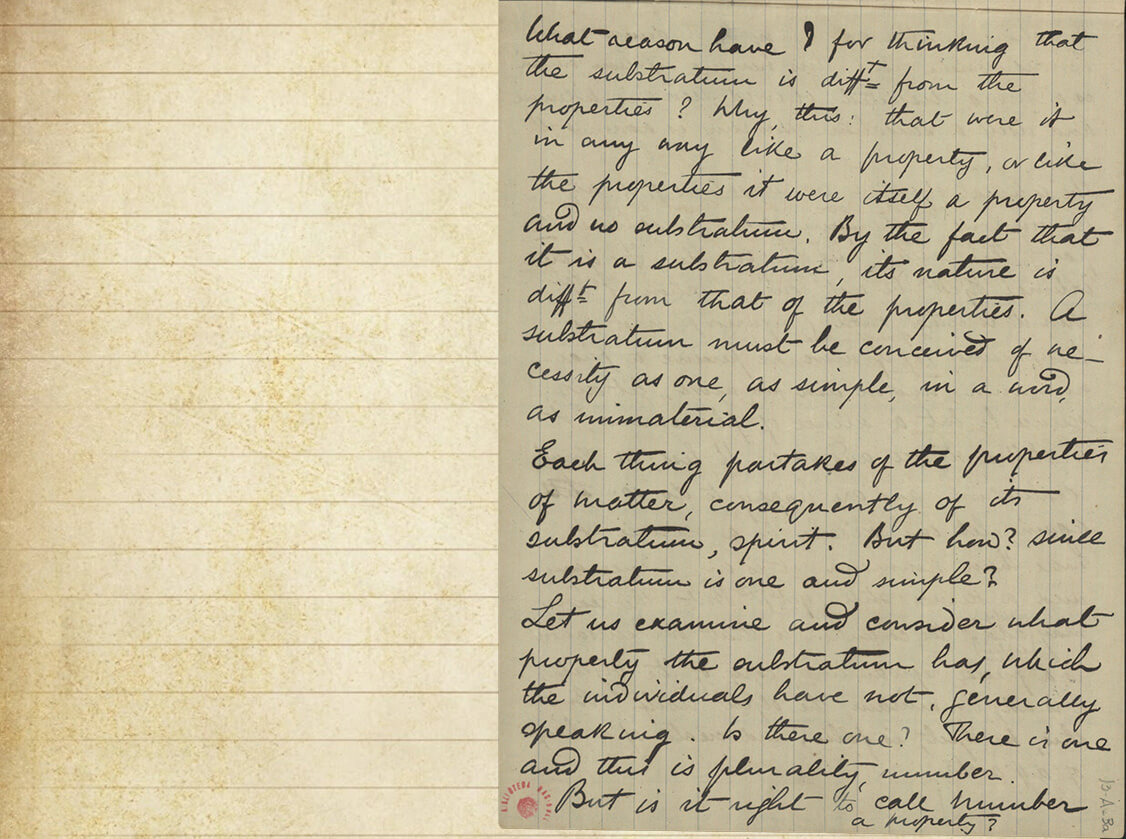 What reason have I for thinking that
the substratum is diff.t from the
properties? Why, this: that were it
in any any like a property, or like
the properties it were itself a property
and no substratum. By the fact that
it is a substratum, its nature is
diff.t from that of the properties. A
substratum must be conceived of ne-
cessity as one, as simple, in a word,
as immaterial.
Each thing partakes of the properties
of matter, consequently of its
substratum, spirit. But how? since
substratum is one and simple?
Let us examine and consider what
property the substratum has, which
the individuals have not, generally
speaking. Is there one? There is one
and this is plurality, number.
But is it right to call number
a property?
BIBLIOTECA NACIONAL